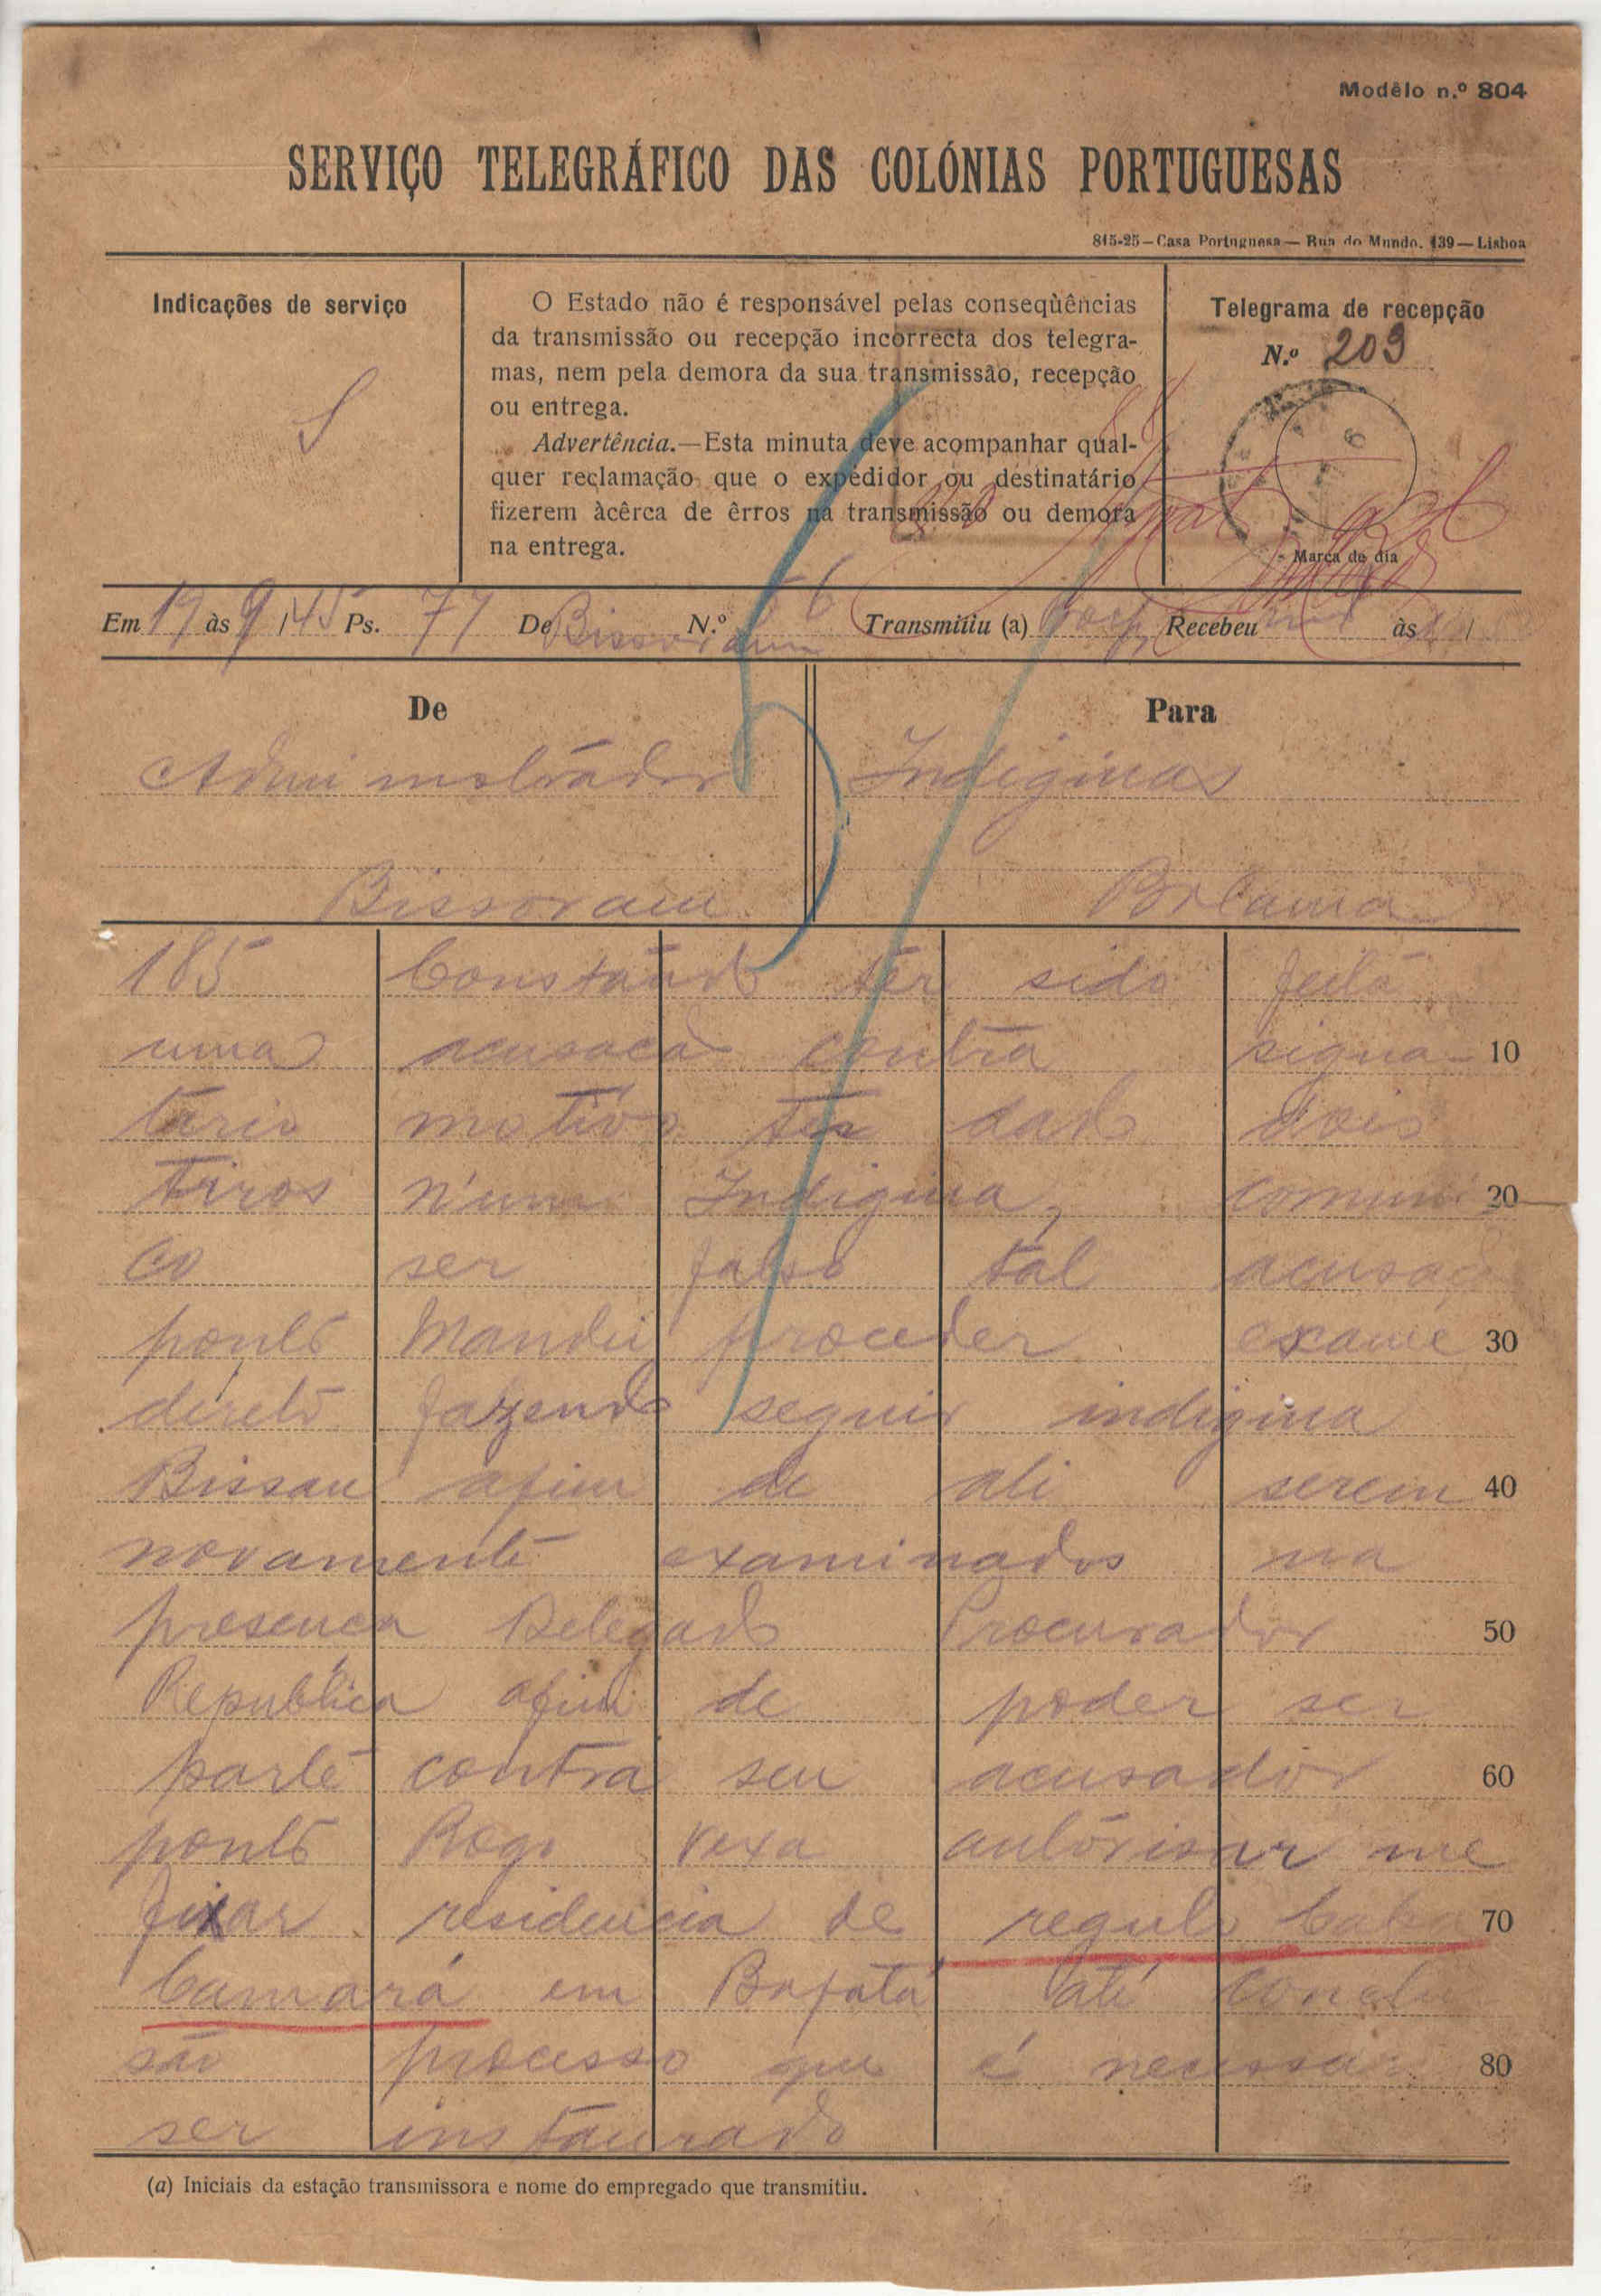 Modêlo n.º 804
SERVIÇO TELEGRÁFICO DAS COLÓNIAS PORTUGUESAS
815-25—Casa Portuguesa—Rua do Mundo, 139—Lisboa
Indicações de serviço
S
O Estado não é responsável pelas conseqùências
da transmissão ou recepção incorrecta dos telegra-
mas, nem pela demora da sua transmissão, recepção
ou entrega.
Advertência.—Esta minuta deve acompanhar qual-
quer reclamação que o expedidor ou destinatário
fizerem àcêrca de êrros na transmissão ou demora
na entrega.
Telegrama de recepção
N.º 209
Marca de dia
Em 19 às 9/45 Ps. 77 De Bissoram N.º 56 Transmitiu (a) Recebeu às /
De
Administrador
Bissoram
Para
Indiginas
Bolama
185 Constando ter sido feita
uma acusacão contra signa- 10
tario motivo ter dado dois
tiros n'um Indigina, comuni 20
co ser falso tal acusaç
ponto Mandei proceder exame 30
direto fazendo seguir indigina
Bissau afim de ali serem 40
novamente examinados na
presença Delegado Procurador 50
Republica afim de poder ser
parte contra seu acusador 60
ponto Rogo vexa autorisar me
fixar residencia de regulo Caba 70
Camará em Bafatá até conclu
são processo que é necessar 80
ser instaurado
(a) Iniciais da estação transmissora e nome do empregado que transmitiu.